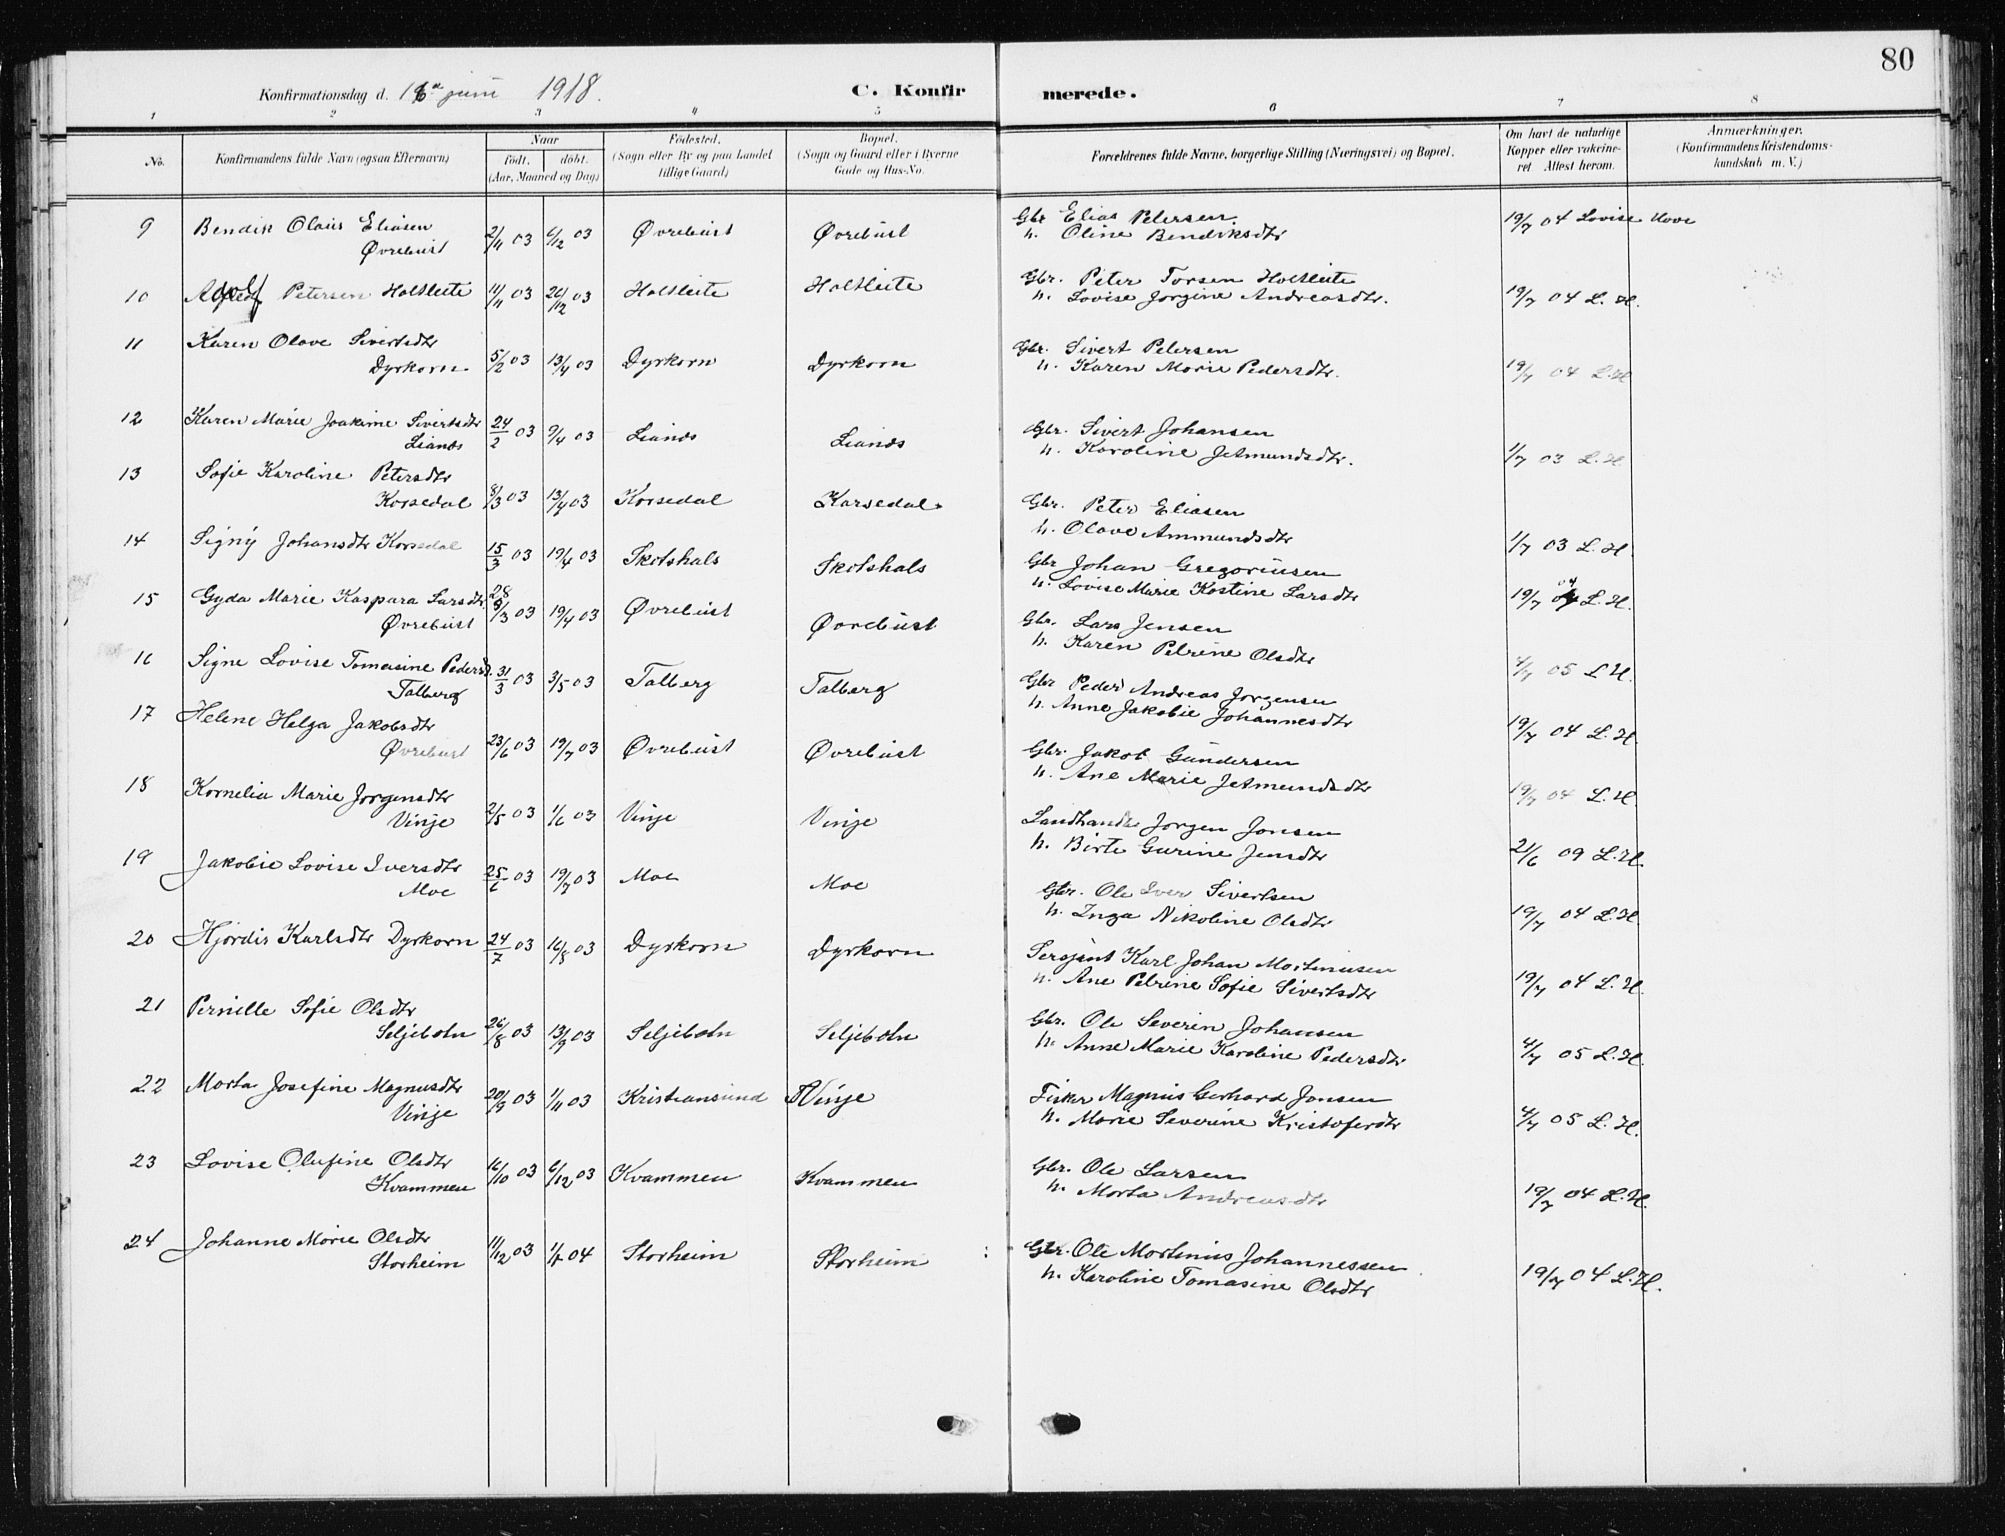 80
Konfirmationsdag d. 16de juni 1918. C. Konfirmerede.
1 2 3 4 5 6 7 8
No. Konfirmandens fulde Navn (ogsaa Efternavn) Naar født, døbt. (Aar, Maaned og Dag) Fødested. (Sogn eller By og paa Landet tillige Gaard) Bopæl. (Sogn og Gaard eller i Byerne Gade og Hus-No. Forældrenes fulde Navne, borgerlige Stilling (Næringsvei) og Bopæl. Om havt de naturlige Kopper eller vakcineret Attest herom. Anmærkninger. (Konfirmandens Kristendomskundskab m. V.)
9 Bendik Olaus Eliasen 2/11 03 6/12 03 Øvrebust Øvrebust Gbr Elias Petersen 19/7 04 Lovise Hove
Øvrebust h. Oline Bendiksdtr
10 Adolf Petersen Holtleite 11/11 03 26/12 03 Holtleite Holtleite Gbr. Peter Torsen Holtleite 19/7 04 L. H.
h. Lovise Jørgine Andreasdtr.
11 Karen Olave Sivertsdtr Gbr. Sivert Petersen
Dyrkorn 5/2 03 13/4 03 Dyrkorn Dyrkorn h. Karen Marie Pedersdtr. 19/7 04 L.H
12 Karen Marie Joakime Sivertsdtr 24/2 03 9/4 03 Lianes Lianes Gbr. Sivert Johansen
Lianes h. Karoline Jetmundsdtr. 1/7 03 L.H
13 Sofie Karoline Petersdtr Gbr. Peter Eliasen
Korsedal 8/3 03 13/4 03 Korsedal Korsedal h. Olave Ammundsdtr 1/7 03 L. H
14 Signy Johansdtr Korsedal 15/3 03 19/4 03 Skotshals Skotshals Gbr Johan Gregoriusen
h. Lovise Marie Kostine Larsdtr 19/7 04 L.H.
15 Gyda Marie Kaspara Larsdtr 28/3 03 19/4 03 Øvrebust Øvrebust Gbr. Lars Jensen
Øvrebust h. Karen Petrine Olsdtr 4/7 05 L H.
16 Signe Lovise Tomasine Pedersd. 31/3 03 3/5 03 Talberg Talberg Gbr Peder Andreas Jørgensen
Talberg h. Anne Jakobie Johannesdtr 19/7 04 L.H.
17 Helene Helga Jakobsdtr Gbr. Jakob Gundersen
Øvrebust 23/6 03 19/7 03 Øvrebust Øvrebust h. Ane Marie Jetmundsdtr 19/7 04 L.H.
18 Kornelia Marie Jørgensdtr Landhandl Jørgen Jonsen
Vinje 2/5 03 1/6 03 Vinje Vinje h. Birte Gurine Jensdtr 21/6 09 L.H.
19 Jakobie Lovise Iversdtr 25/6 03 19/7 03 Moe Moe Gbr. Ole Iver Sivertsen
Moe h. Inga Nikoline Olsdtr 19/7 04 L.H.
20 Hjørdis Karlsdtr Dyrkorn 24/7 03 16/8 03 Dyrkorn Dyrkorn Sergjant Karl Johan Martinusen
h. Ane Petrine Sofie Sivertsdtr 19/7 04 L. H.
21 Pernille Sofie Olsdtr Gbr. Ole Severin Johansen
Seljebotn 26/8 03 13/9 03 Seljebotn Seljebotn h. Anne Marie Karoline Pedersdtr 4/7 05 L.H.
22 Marta Josefine Magnusdtr 20/9 03 1/11 03 Kristiansund Vinje Fisker Magnus Gerhard Jonsen
Vinje h. Marie Severine Kristoferdtr 4/7 05 L. H.
23 Lovise Olufine Olsdtr 16/10 03 6/12 03 Kvammen Kvammen Gbr. Ole Larsen
Kvammen h. Marta Andreasdtr 19/7 04 L.H.
24 Johanne Marie Olsdtr 11/12 03 04 Storheim Storheim Gbr. Ole Martinus Johannessen
Storheim h. Karoline Tomasine Olsdtr 19/7 04 L.H.